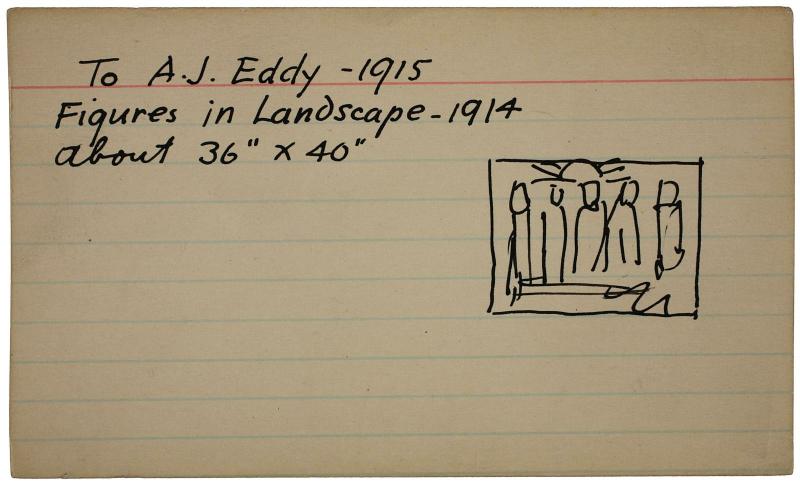 To A.J. Eddy - 1915
Figures in Landscape - 1914
about 36" x 40"